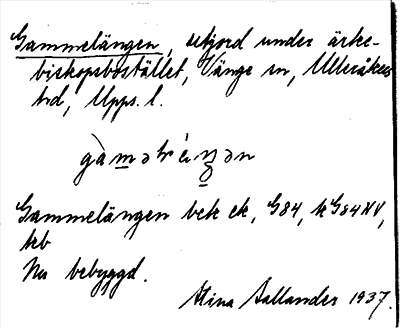 Gammelängen, utjord under ärke-
biskopsbostället, Vänge sn, Ulleråkers
hd, Upps. l.
Gammelängen bek ek, G84, kG84XV,
krb
Nu bebyggd.
Stina Sallander 1937.